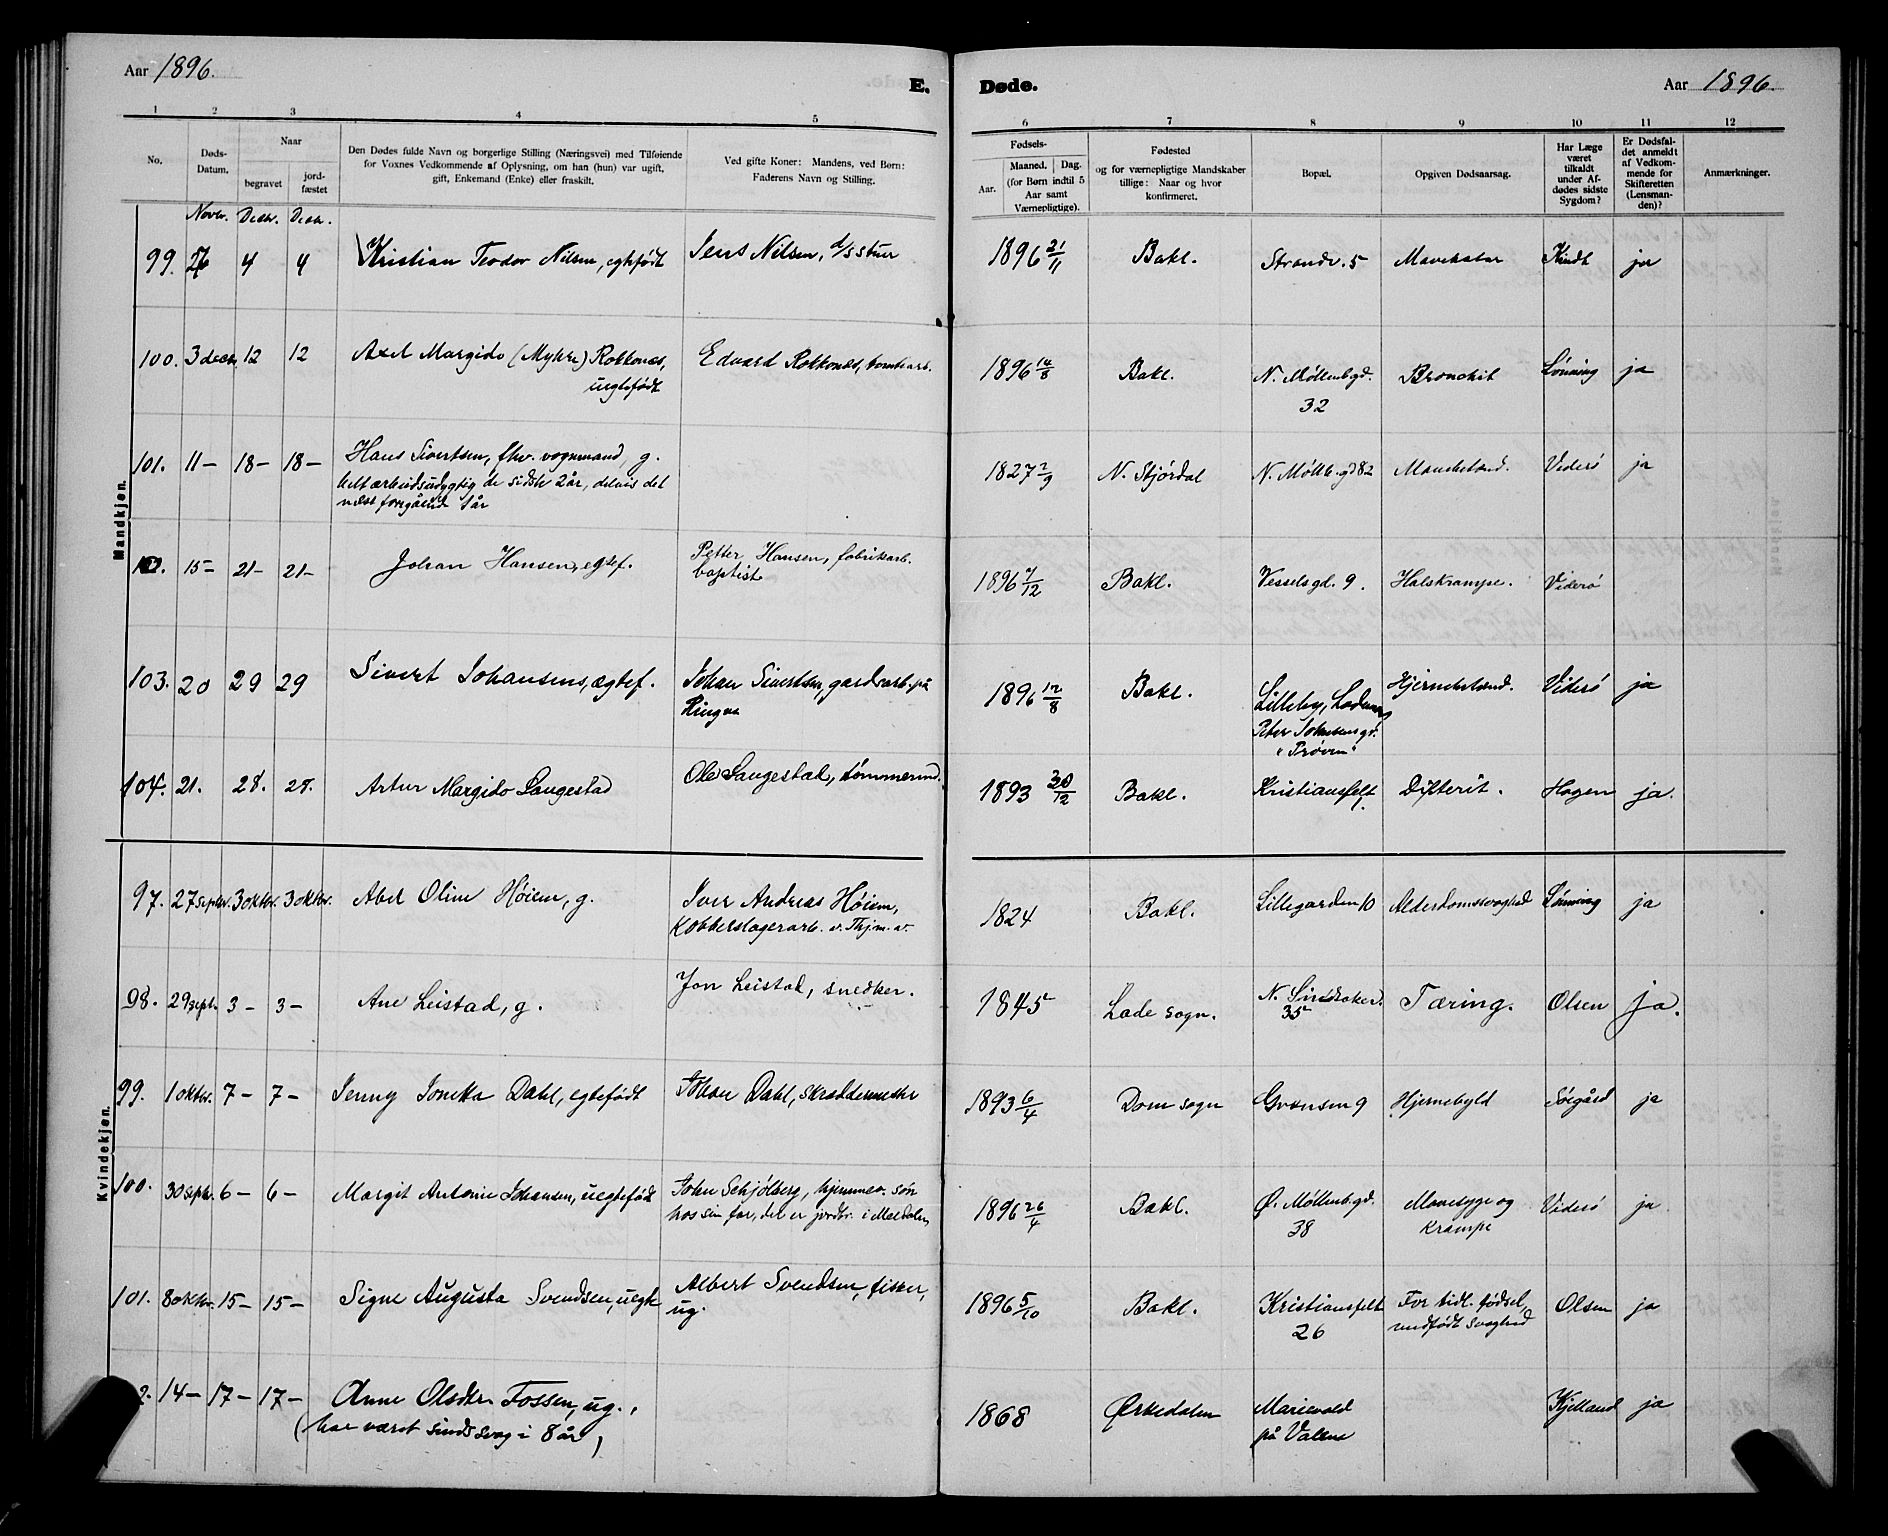 Aar 1896.
E. Døde.
Aar 1896.
1 2 3 4 5 6 7 8 9 10 11 12
No.
Døds-Datum.
Naar
begravet
jord-fæstet
Den Dødes fulde Navn og borgerlige Stilling (Næringsvei) med Tilføiende
for Voxnes Vedkommende af Oplysning, om han (hun) var ugift,
gift, Enkemand (Enke) eller fraskilt.
Ved gifte Koner: Mandens, ved Børn:
Faderens Navn og Stilling.
Fødsels-
Aar.
Maaned. Dag.
(for Børn indtil 5
Aar samt
Værnepligtige).
Fødested
og for værnepligtige Mandskaber
tillige: Naar og hvor
konfirmeret.
Bopæl.
Opgiven Dødsaarsag.
Har Læge
været
tilkaldt
under Af-
dødes sidste
Sygdom?
Er Dødsfal-
det anmeldt
af Vedkom-
mende for
Skifteretten
(Lensman-
den)?
Anmærkninger.
Mandkjøn.
Novbr. Decbr. Decbr.
99. 26 4 4 Kristian Teodor Nilsen, egtefødt Jens Nilsen, 1896 21/11 Bakl. Strandv. 5 Mavekatar Kindt ja
100. 3 decbr. 12 12 Axel Margido (Myhre) Rokkones, Edvard Rokkones, tomtearb. 1896 14/8 Bakl. N. Møllenbgd. Bronchit Lønning ja
uegtefødt
32
101. 11 – 18 – 18 – Hans Sivertsen, fhv. vognmand, g. 1827 2/9 N. Stjørdal N. Møllb. gd 82 Viderö ja
helt arbeidsudygtig de sidste 2 år, delvis det
næst foregående 1 år
102. 15 – 21 – 21 – Johan Hansen, egtef. Petter Hansen, fabrikarb. 1896 7/12 Bakl. Vesselsgd. 9. Halskrampe. Viderö
baptist
103. 20 29 29 Sivert Johansens, ægtef. Johan Sivertsen, gardsarb. på 1896 12/8 Bakl. Lilleby, Hjernebetænd. Viderö ja
Ringve
"Prøven"
104. 21. 28. 28. Artur Margido Langestad Ole Langestad, tömmermd. 1893 30/12 Bakl. Kristiansfelt Difterit. Hagen ja.
1.
Kvindekjøn.
97. 27 septbr. 3 oktbr. 3 oktbr. Abel Oline Høiem, g. Iver Andreas Høiem, 1824 Bakl. Lillegarden 10 Alderdomssvaghed Lønning ja
Kobberslagerarb. v. Thj.m.v.
98. 29 septb. 3 – 3 – Ane Leistad, g. Jon Leistad, snedker. 1845 Lade sogn. N. Sindsaker. Tæring. Olsen ja.
35
99. 1 oktbr. 7 – 7 – Jenny Jonetta Dahl, egtefødt Johan Dahl, skræddermester 1893 6/4 Dom sogn Grænsen 9 Hjernebyld Søegård ja
100. 30 septb. 6 – 6 – Margit Antonie Johansen, uegtefødt John Schjølberg, hjemmev. søn 1896 26/4 Bakl. Ø. Møllenbgd. Mavesyge og Viderö ja
hos sin far, der er jordbr. i Meldalen
38
krampe
101. 8 oktbr. 15 – 15 – Signe Augusta Svendsen, uegte Albert Svendsen, fisker, 1896 5/10 Bakl. Kristiansfelt For tidl. fødsel, Olsen ja
ug.
26
medfødt svaghed
14 – 17 – 17 – Anne Olsdtr. Fossen, ug., 1868 Ørkedalen Marievold Kjelland ja
(har været sindssvag i 8 år)
på Valene